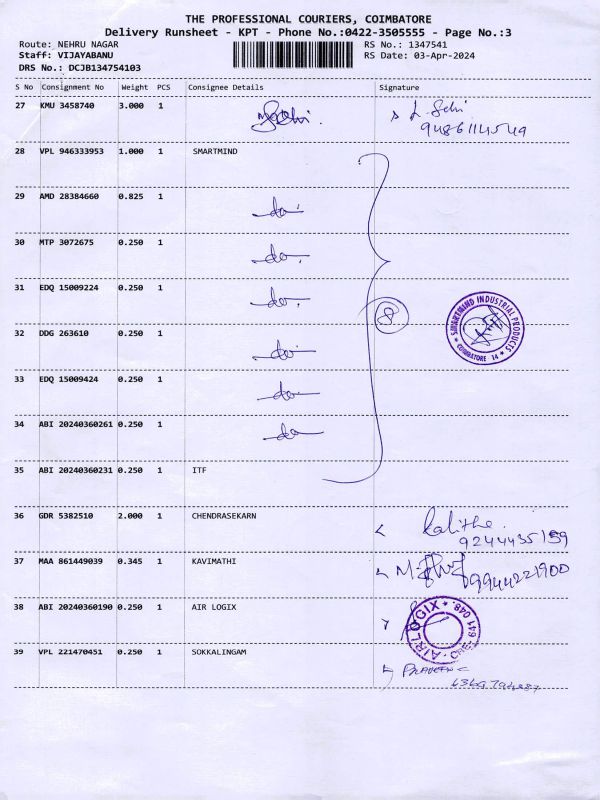 THE PROFESSIONAL COURIERS, COIMBATORE
Delivery Runsheet - KPT - Phone No.:0422-3505555 - Page No.:3
Route: NEHRU NAGAR RS No.: 1347541
Staff: VIJAYABANU RS Date: 03-Apr-2024
DRS No.: DCJB134754103
S No Consignment No Weight PCS Consignee Details Signature
27 KMU 3458740 3.000 1
28 VPL 946333953 1.000 1 SMARTMIND
29 AMD 28384660 0.825 1 do
30 MTP 3072675 0.250 1 do
31 EDQ 15009224 0.250 1 do
8
SMARTMIND INDUSTRIAL PRODUCTS
* COIMBATORE 14 *
32 DDG 263610 0.250 1 do
33 EDQ 15009424 0.250 1 do
34 ABI 20240360261 0.250 1 do
35 ABI 20240360231 0.250 1 ITF
36 GDR 5382510 2.000 1 CHENDRASEKARN Lalitha
9244435159
37 MAA 861449039 0.345 1 KAVIMATHI
9944221900
38 ABI 20240360190 0.250 1 AIR LOGIX
* AIRLOGIX * CBE-641 048.
39 VPL 221470451 0.250 1 SOKKALINGAM